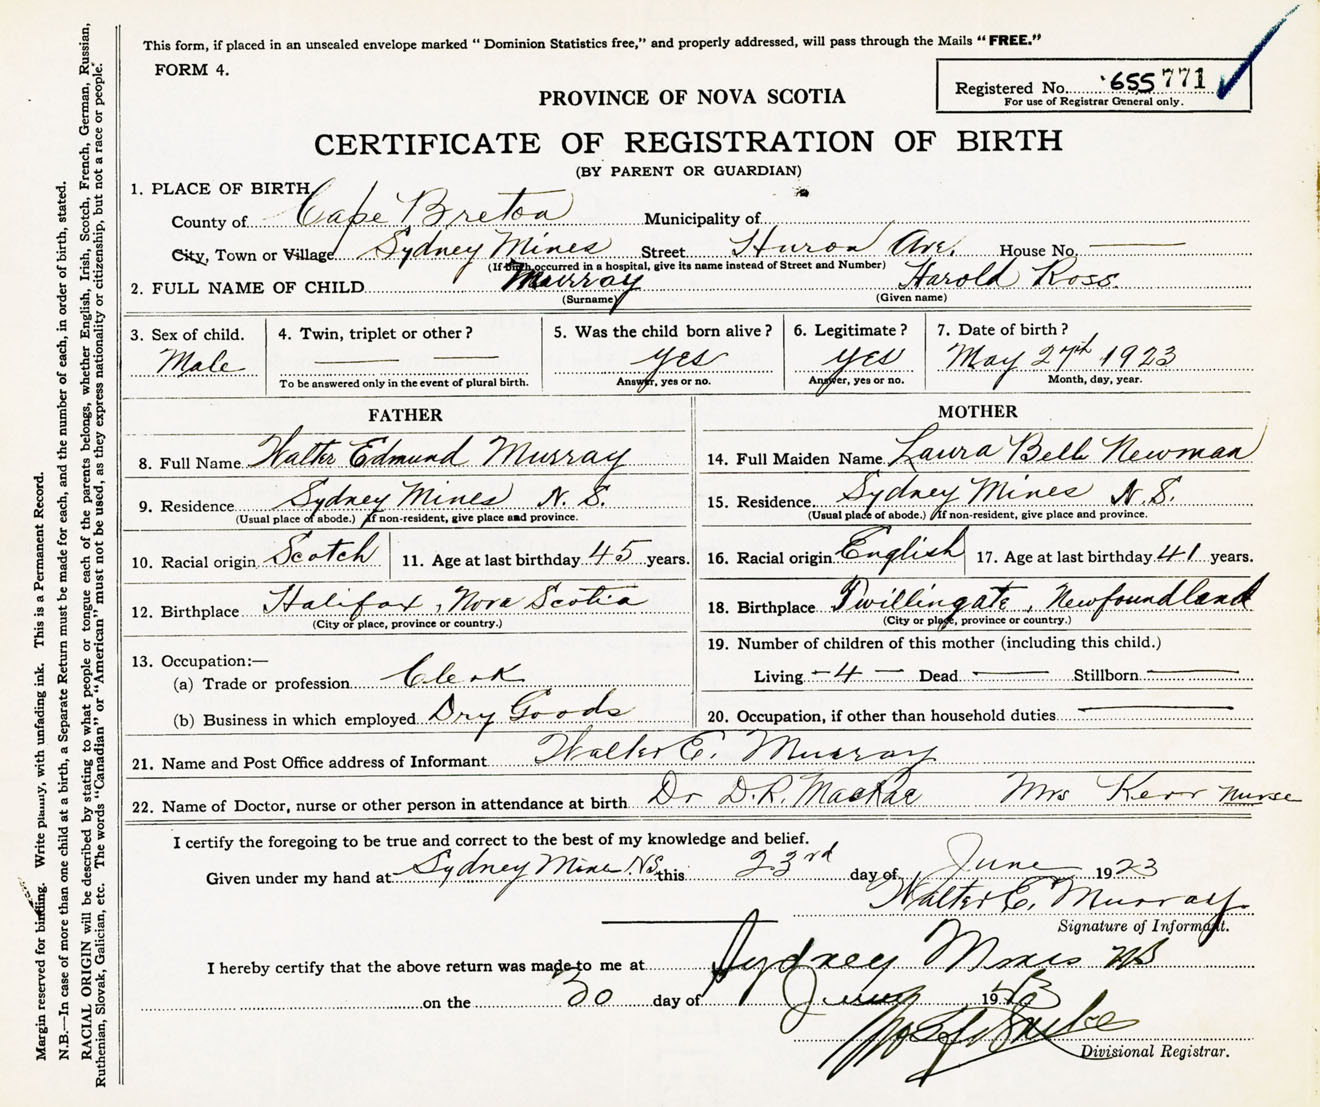 This form, if placed in an unsealed envelope marked “ Dominion Statistics free,” and properly addressed, will pass through the Mails “ FREE.”
FORM 4.
Registered No. 655771
For use of Registrar General only.
PROVINCE OF NOVA SCOTIA
CERTIFICATE OF REGISTRATION OF BIRTH
(BY PARENT OR GUARDIAN)
1. PLACE OF BIRTH
County of Cape Breton Municipality of
City, Town or Village Sydney Mines Street Huron Ave. House No. —
(If birth occurred in a hospital, give its name instead of Street and Number)
2. FULL NAME OF CHILD Murray Harold Ross.
(Surname) (Given name)
3. Sex of child. 4. Twin, triplet or other ? 5. Was the child born alive ? 6. Legitimate ? 7. Date of birth ?
Male — — yes yes May 27th 1923
To be answered only in the event of plural birth. Answer, yes or no. Answer, yes or no. Month, day, year.
FATHER MOTHER
8. Full Name Walter Edmund Murray 14. Full Maiden Name Laura Bell Newman
9. Residence Sydney Mines N. S. 15. Residence Sydney Mines N. S.
(Usual place of abode.) If non-resident, give place and province. (Usual place of abode.) If non-resident, give place and province.
10. Racial origin Scotch 11. Age at last birthday 45 years. 16. Racial origin English 17. Age at last birthday 41 years.
12. Birthplace Halifax, Nova Scotia 18. Birthplace Twillingate, Newfoundland
(City or place, province or country.) (City or place, province or country.)
19. Number of children of this mother (including this child.)
13. Occupation:—
(a) Trade or profession Clerk Living - 4 - Dead — Stillborn —
(b) Business in which employed Dry Goods 20. Occupation, if other than household duties —
21. Name and Post Office address of Informant Walter E. Murray
22. Name of Doctor, nurse or other person in attendance at birth Dr D.R. MacRae Mrs Kerr nurse
I certify the foregoing to be true and correct to the best of my knowledge and belief.
Given under my hand at Sydney Mines N.S. this 23rd day of June 1923
Walter E. Murray
Signature of Informant.
I hereby certify that the above return was made to me at Sydney Mines NS
on the 30 day of June 1923
Divisional Registrar.
Margin reserved for binding. Write plainly, with unfading ink. This is a Permanent Record.
N.B.—In case of more than one child at a birth, a Separate Return must be made for each, and the number of each, in order of birth, stated.
RACIAL ORIGIN will be described by stating to what people or tongue each of the parents belongs, whether English, Irish, Scotch, French, German, Russian,
Ruthenian, Slovak, Galician, etc. The words “Canadian” or “American” must not be used, as they express nationality or citizenship, but not a race or people.